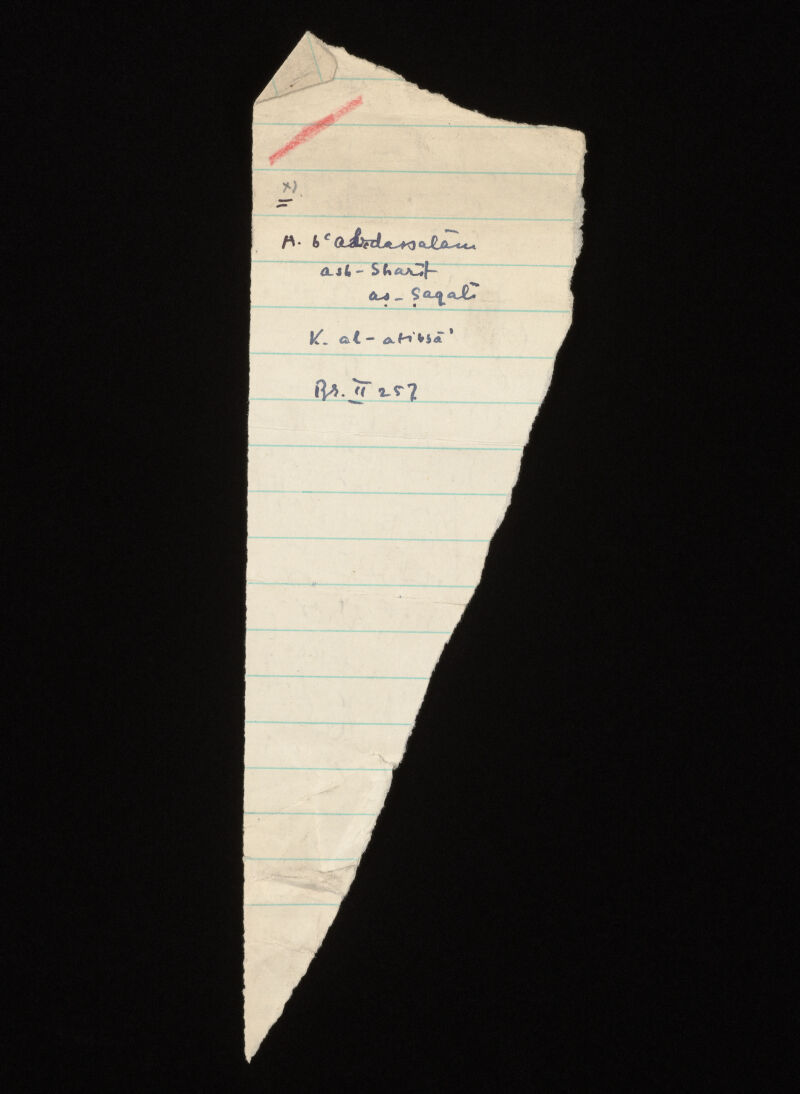 XI
A. b ʿabdassalām
ash-Sharīf
aṣ-Ṣaqalī
K. al-aṭibbā'
Br. II 257